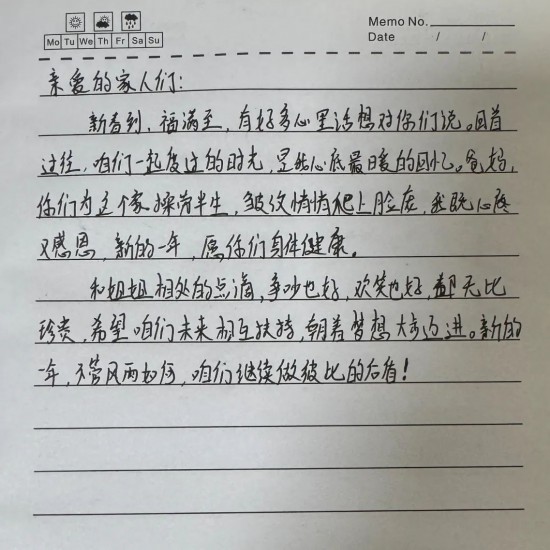 Memo No.
Mo Tu We Th Fr Sa Su
Date / /
亲爱的家人们:
新春到，福满至，有好多心里话想对你们说。回首
过往，咱们一起度过的时光，是我心底最暖的回忆。爸妈，
你们为这个家操劳半生，皱纹悄悄爬上脸庞，我既心疼
又感恩，新的一年，愿你们身体健康。
和姐姐相处的点滴，争吵也好，欢笑也好，都无比
珍贵，希望咱们未来相互扶持，朝着梦想大步迈进。新的
一年，不管风雨如何，咱们继续做彼此的后盾！